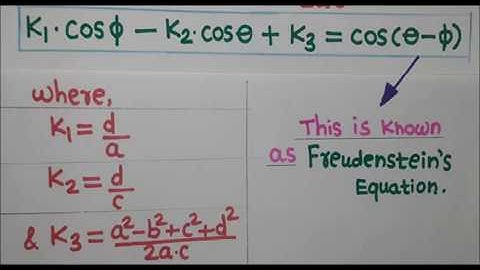 K₁·cosϕ − K₂·cosθ + K₃ = cos(θ−ϕ)
where,
K₁ = d/a
K₂ = d/c
& K₃ = a²−b²+c²+d²/2a·c
This is Known
as Freudenstein's
Equation.